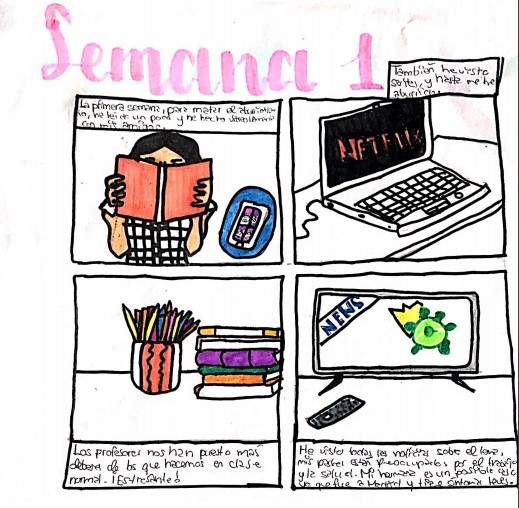 Semana 1
La primera semana, para matar el aburrimien-
to, he leído un poco y he hecho videollamada
con mis amigas.
También he visto
series, y hasta me he
aburrido.
NETFLIX
NEWS
Los profesores nos han puesto más
deberes de los que hacemos en clase
normal. ¡Estresante!
He visto todas las noticias sobre el
mis padres están preocupados por el trabajo
y la salud. Mi hermana es un posible caso
ya que fue a Madrid y tiene síntomas leves.